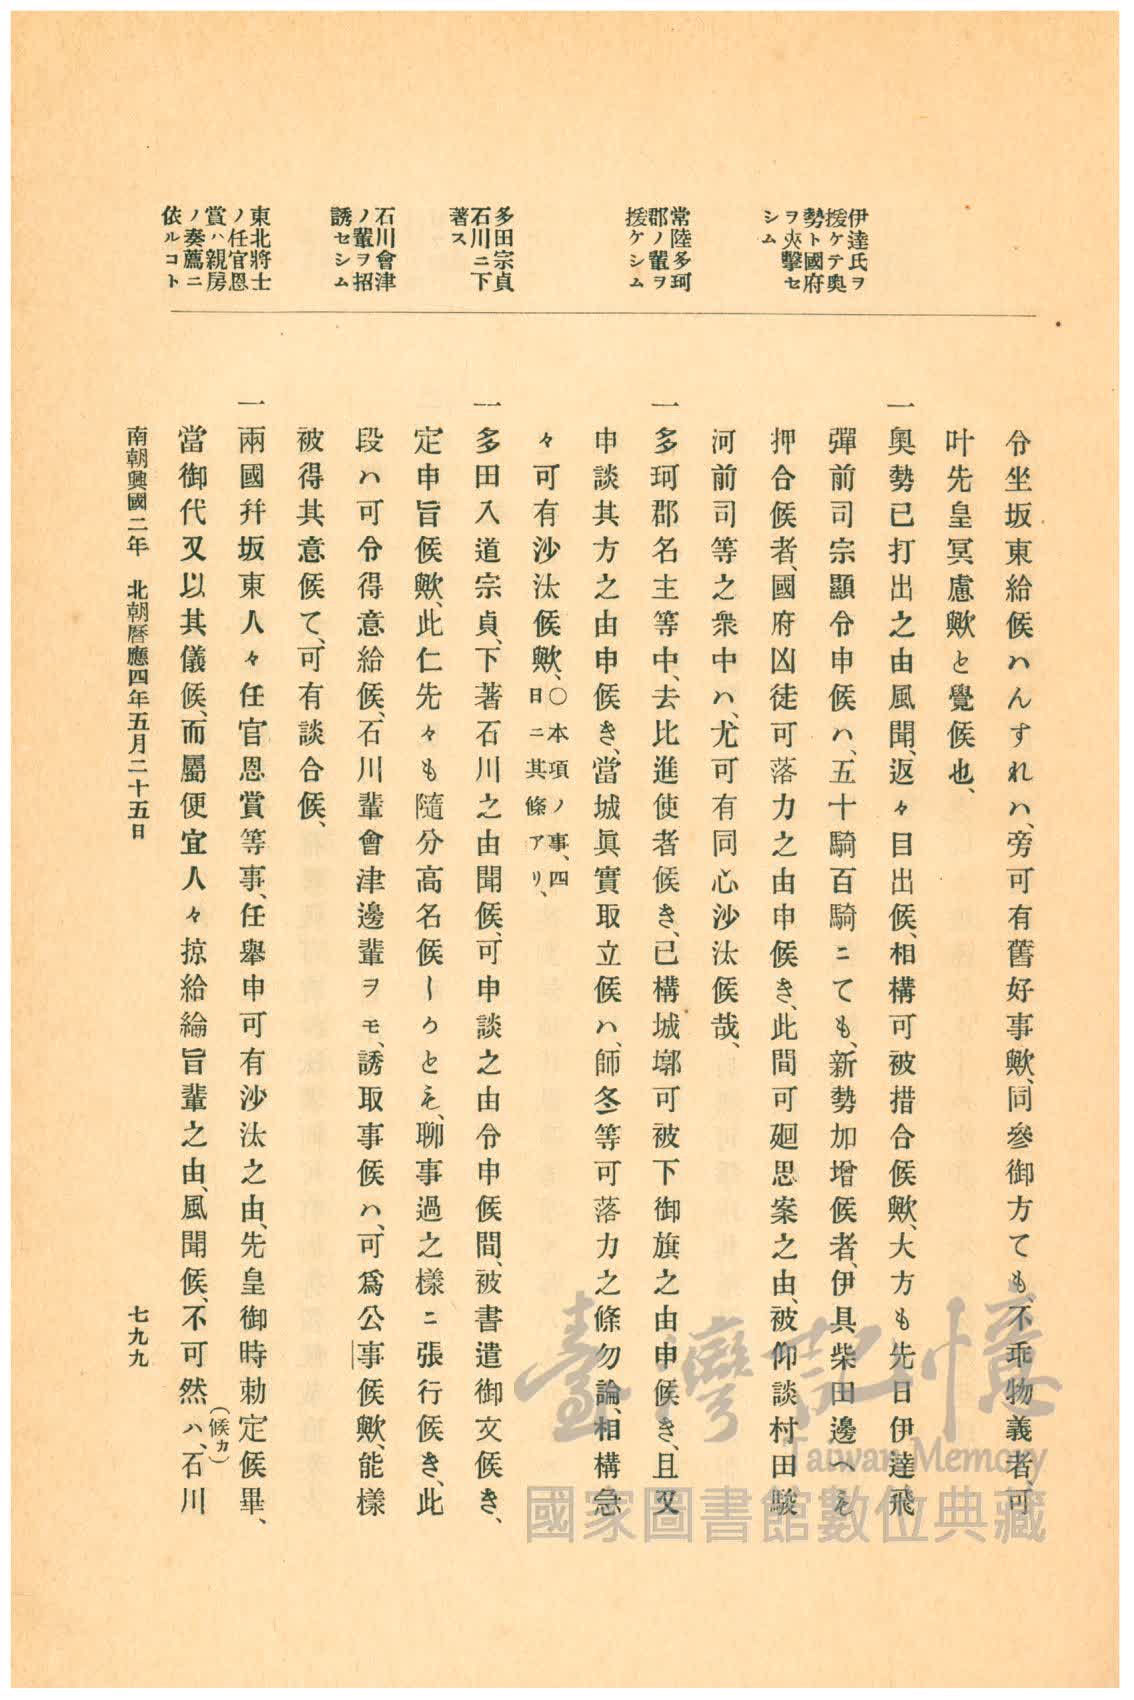 伊達氏ヲ
援ケテ奥
勢ト國府
ヲ夾擊セ
シム
常陸多珂
郡ノ輩ヲ
援ケシム
多田宗貞
石川ニ下
著ス
石川會津
ノ輩ヲ招
誘セシム
東北將士
ノ任官恩
賞ハ親房
ノ奏薦ニ
依ルコト
令坐坂東給候ハんすれハ、旁可有舊好事歟、同參御方ても、不乖物義者、可
叶先皇冥慮歟と覺候也、
一奥勢已打出之由風聞、返々目出候、相構可被措合候歟、大方も先日伊達飛
彈前司宗顯令申候ハ、五十騎百騎ニても、新勢加增候者、伊具柴田邊へも
押合候者、國府凶徒可落力之由申候き、此間可廻思案之由、被仰談村田駿
河前司等之衆中ハ、尤可有同心沙汰候哉、
一多珂郡名主等中、去比進使者候き、已構城墎可被下御旗之由申候き、且又
申談其方之由申候き、當城眞實取立候ハ、師冬等可落力之條勿論、相構急
々可有沙汰候歟、〇本項ノ事、四
日ニ其條アリ、
一多田入道宗貞、下著石川之由聞候、可申談之由令申候間、被書遣御文候き、
定申旨候歟、此仁先々も隨分高名候しかとも、聊事過之樣ニ張行候き、此
段ハ可令得意給候、石川輩會津邊輩ヲモ、誘取事候ハ、可爲公事候歟、能樣
被得其意候て、可有談合候、
一兩國幷坂東人々任官恩賞等事、任擧申可有沙汰之由、先皇御時勅定候畢、
當御代又以其儀候、而屬便宜人々掠給綸旨輩之由、風聞候、不可然(候カ)ハ、石川
南朝興國二年　北朝曆應四年五月二十五日
七九九
臺灣記憶
Taiwan Memory
國家圖書館數位典藏